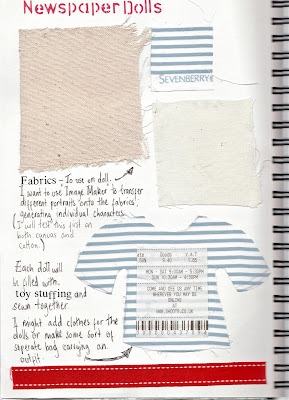 Newspaper Dolls
SEVENBERRY
Fabrics - To use on doll.
I want to use 'Image Maker' to transfer
different portraits onto the fabrics,
generating individual characters.
(I will test this first on
both canvas and
cotton.)
Each doll will
be filled with
toy stuffing and
sewn together.
I might add clothes for the
dolls or make some sort of
seperate bag carrying an
outfit.
Goods V.A.T
MON - SAT 9:00AM - 5:30PM
COME AND SEE US ANY TIME
WHEREVER YOU MAY BE
ONLINE
AT